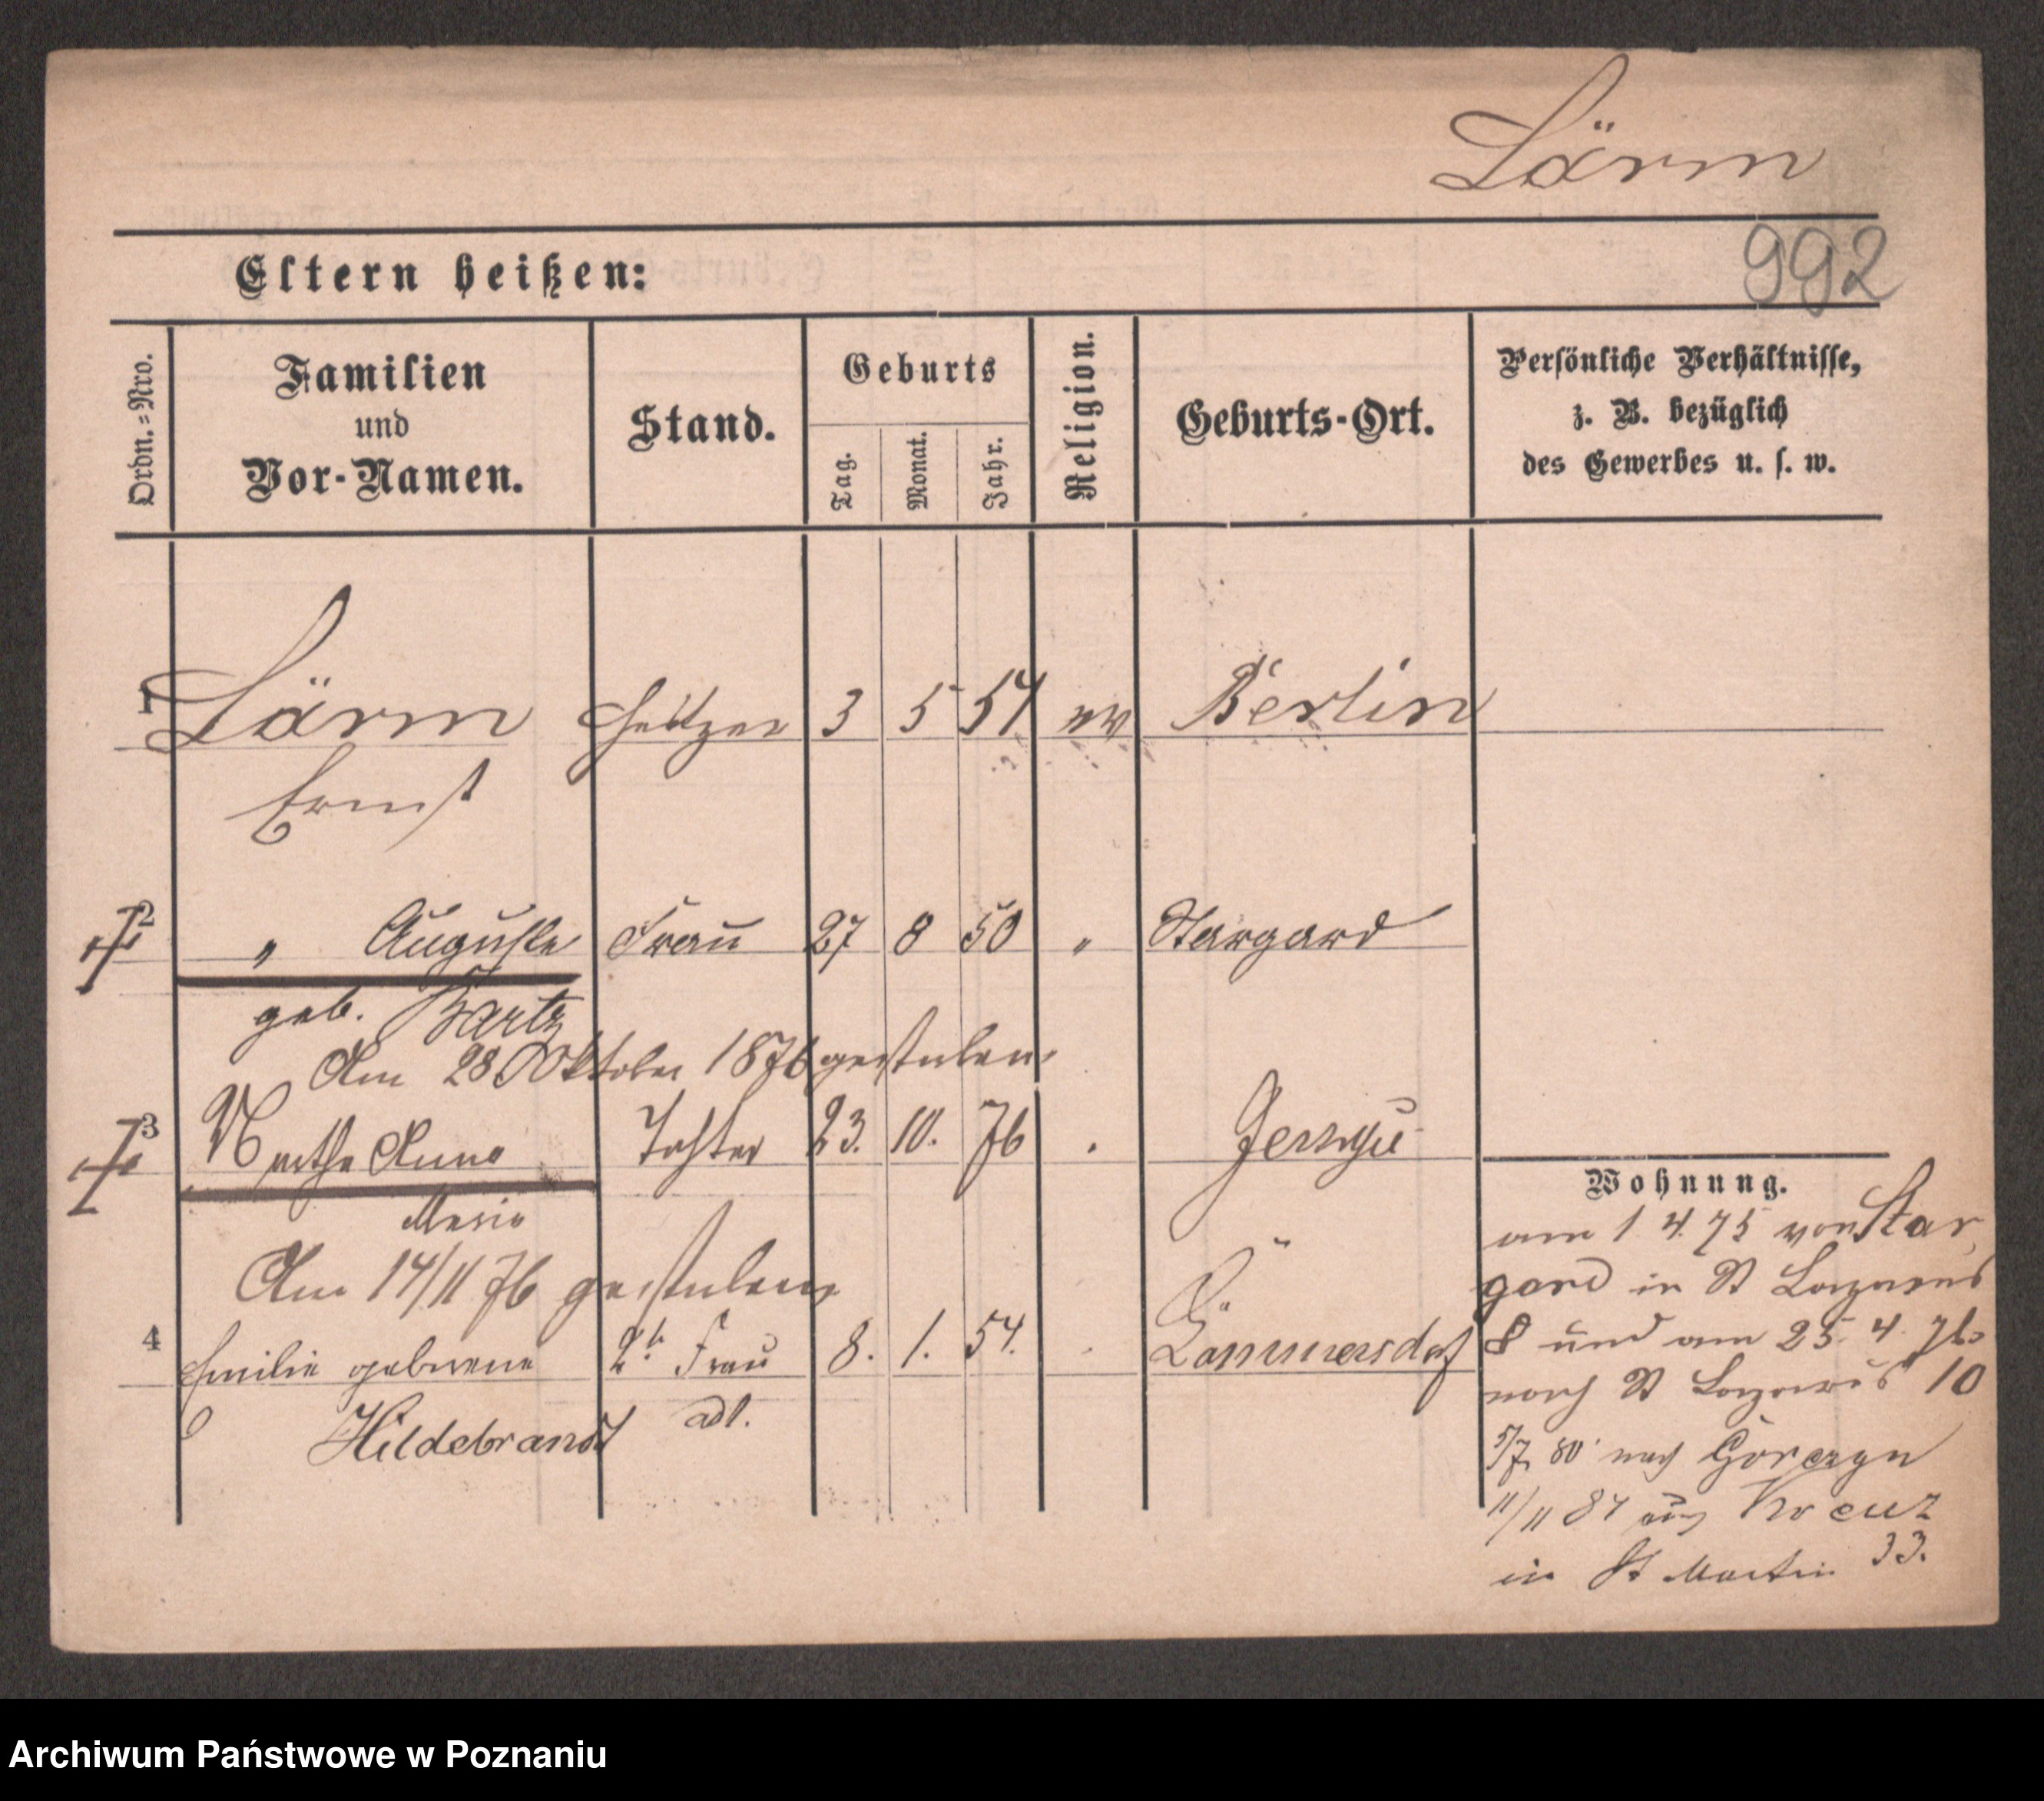 Lärm
992
Eltern heißen:
Ordn.=Nro.
Familien
und
Vor-Namen.
Stand.
Geburts
Tag.
Monat.
Jahr.
Religion.
Geburts-Ort.
Persönliche Verhältnisse,
z. B. bezüglich
des Gewerbes u. s. w.
1 Lärm Heitzer 3 5 51 ev Berlin
Ernst
2 " Auguste Frau 27 8 50 " Stargard
geb. Bartz
Am 28 Oktober 1876 gestorben
3 Martha Anna Tochter 23. 10. 76 Jersyce
Marie
Am 14/11 76 gestorben
4 Emilie geborene 2te Frau 8. 1. 54.
Hildebrandt
Wohnung.
am 1 4 75 von Star
gard in St Lazarus
8 und am 25. 4. 76
nach St Lazarus 10
5/7 80 nach Gorczyn
11/11 84 aus Kreuz
in St Martin 33.
Archiwum Państwowe w Poznaniu